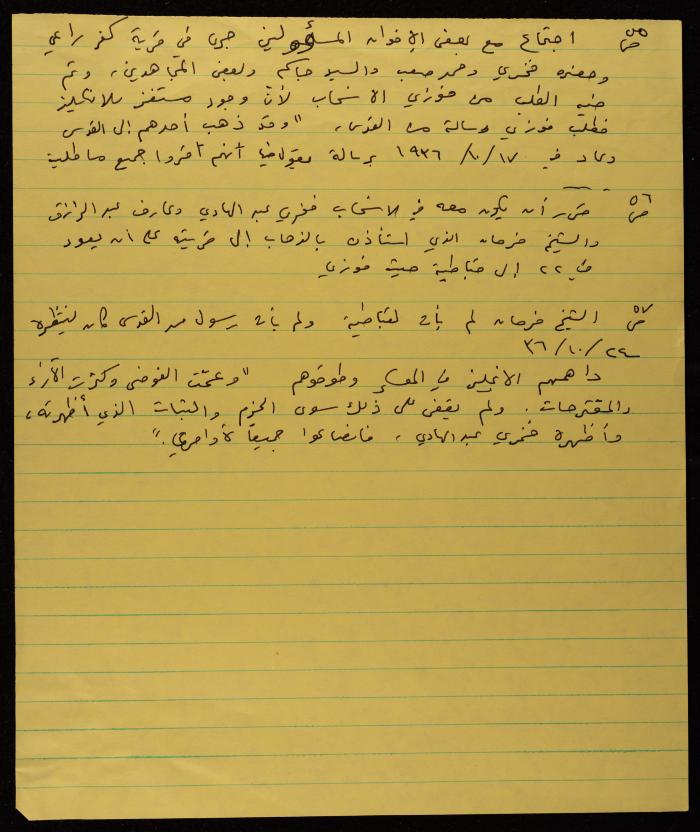 ص ٥٥ اجتماع مع بعض الإخوان المسؤولين جرى في قرية كفر راعي
وحضره فخري وحمد صعب والسيد جاسم وبعض المجاهدين، وتم
فيه الطلب من فوزي الانسحاب لأن وجوده مستفز للانكليز
فطلب فوزي رسالة من القدس، "وقد ذهب أحدهم إلى القدس
وعاد في ١٧/١٠/١٩٣٦ برسالة يقولون فيها أنهم أقروا جميع ما طلبت
ص ٥٦ قرر أن يكون معه في الانسحاب فخري عبد الهادي وعارف عبد الرازق
والشيخ فرحان الذي استأذن بالذهاب إلى قريته على أن يعود
في ٢٢ إلى قباطية حيث فوزي
ص ٥٧ الشيخ فرحان لم يأت لقباطية ولم يأت رسول من القدس كان ينتظره
٢٤/١٠/٣٦
داهمهم الانجليز في المساء وطوقوهم "وعمّت الفوضى وكثرت الآراء
والمقترحات. ولم يقض على ذلك سوى الحزم والثبات الذي أظهرته،
وأظهره فخري عبد الهادي، فانصاعوا جميعاً لأوامري."